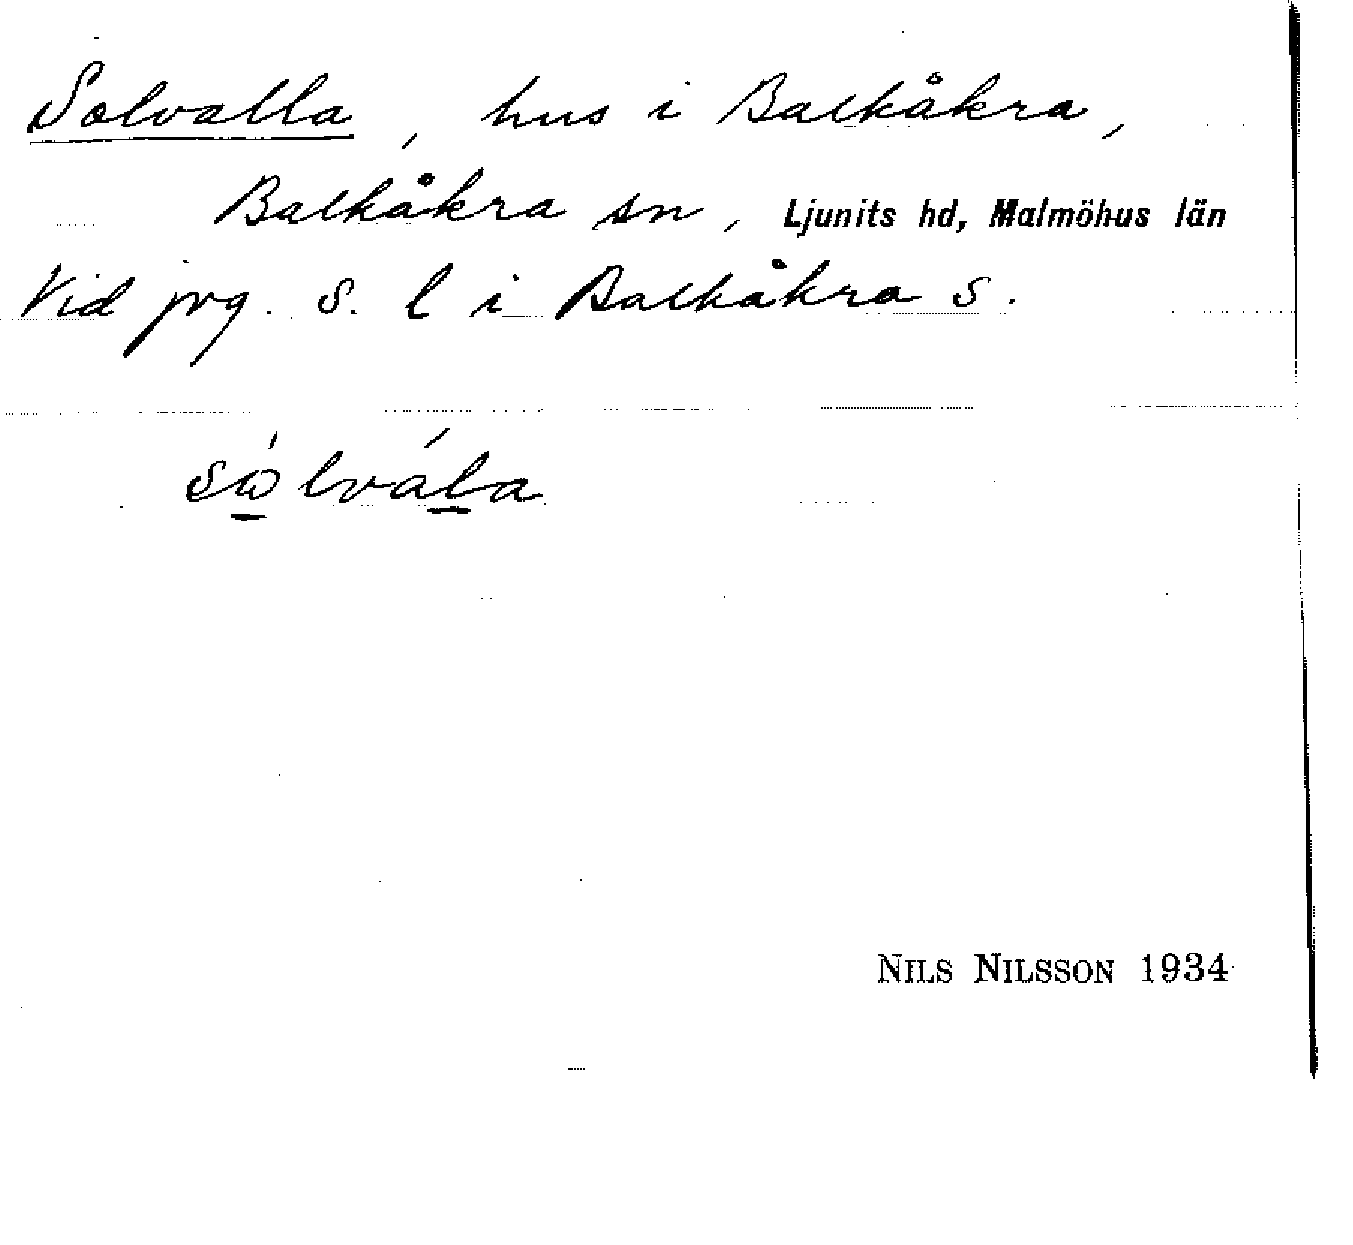 Solvalla, hus i Balkåkra,
Balkåkra sn, Ljunits hd, Malmöhus län
Vid jvg. S. l i Balkåkra s.
sωlvála
NILS NILSSON 1934